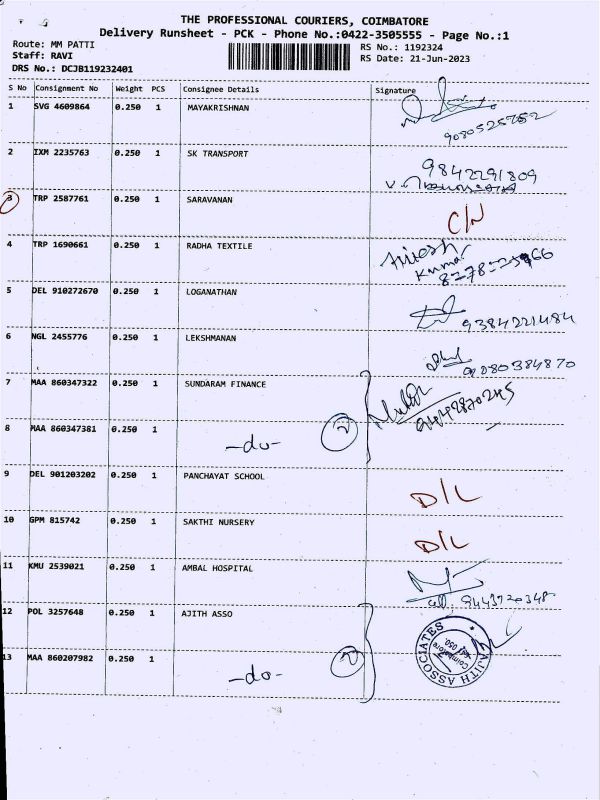 THE PROFESSIONAL COURIERS, COIMBATORE
Delivery Runsheet - PCK - Phone No.:0422-3505555 - Page No.:1
Route: MM PATTI
Staff: RAVI
DRS No.: DCJB119232401
RS No.: 1192324
RS Date: 21-Jun-2023
S No Consignment No Weight PCS Consignee Details Signature
1 SVG 4609864 0.250 1 MAYAKRISHNAN
2 IXM 2235763 0.250 1 SK TRANSPORT 9842291809
3 TRP 2587761 0.250 1 SARAVANAN C/N
4 TRP 1690661 0.250 1 RADHA TEXTILE
5 DEL 910272670 0.250 1 LOGANATHAN 9384221484
6 NGL 2455776 0.250 1 LEKSHMANAN
7 MAA 860347322 0.250 1 SUNDARAM FINANCE
8 MAA 860347381 0.250 1 -do- 2
9 DEL 901203202 0.250 1 PANCHAYAT SCHOOL D/L
10 GPM 815742 0.250 1 SAKTHI NURSERY D/L
11 KMU 2539021 0.250 1 AMBAL HOSPITAL
12 POL 3257648 0.250 1 AJITH ASSO
AJITH ASSOCIATES
Coimbatore
13 MAA 860207982 0.250 1 -do- 2